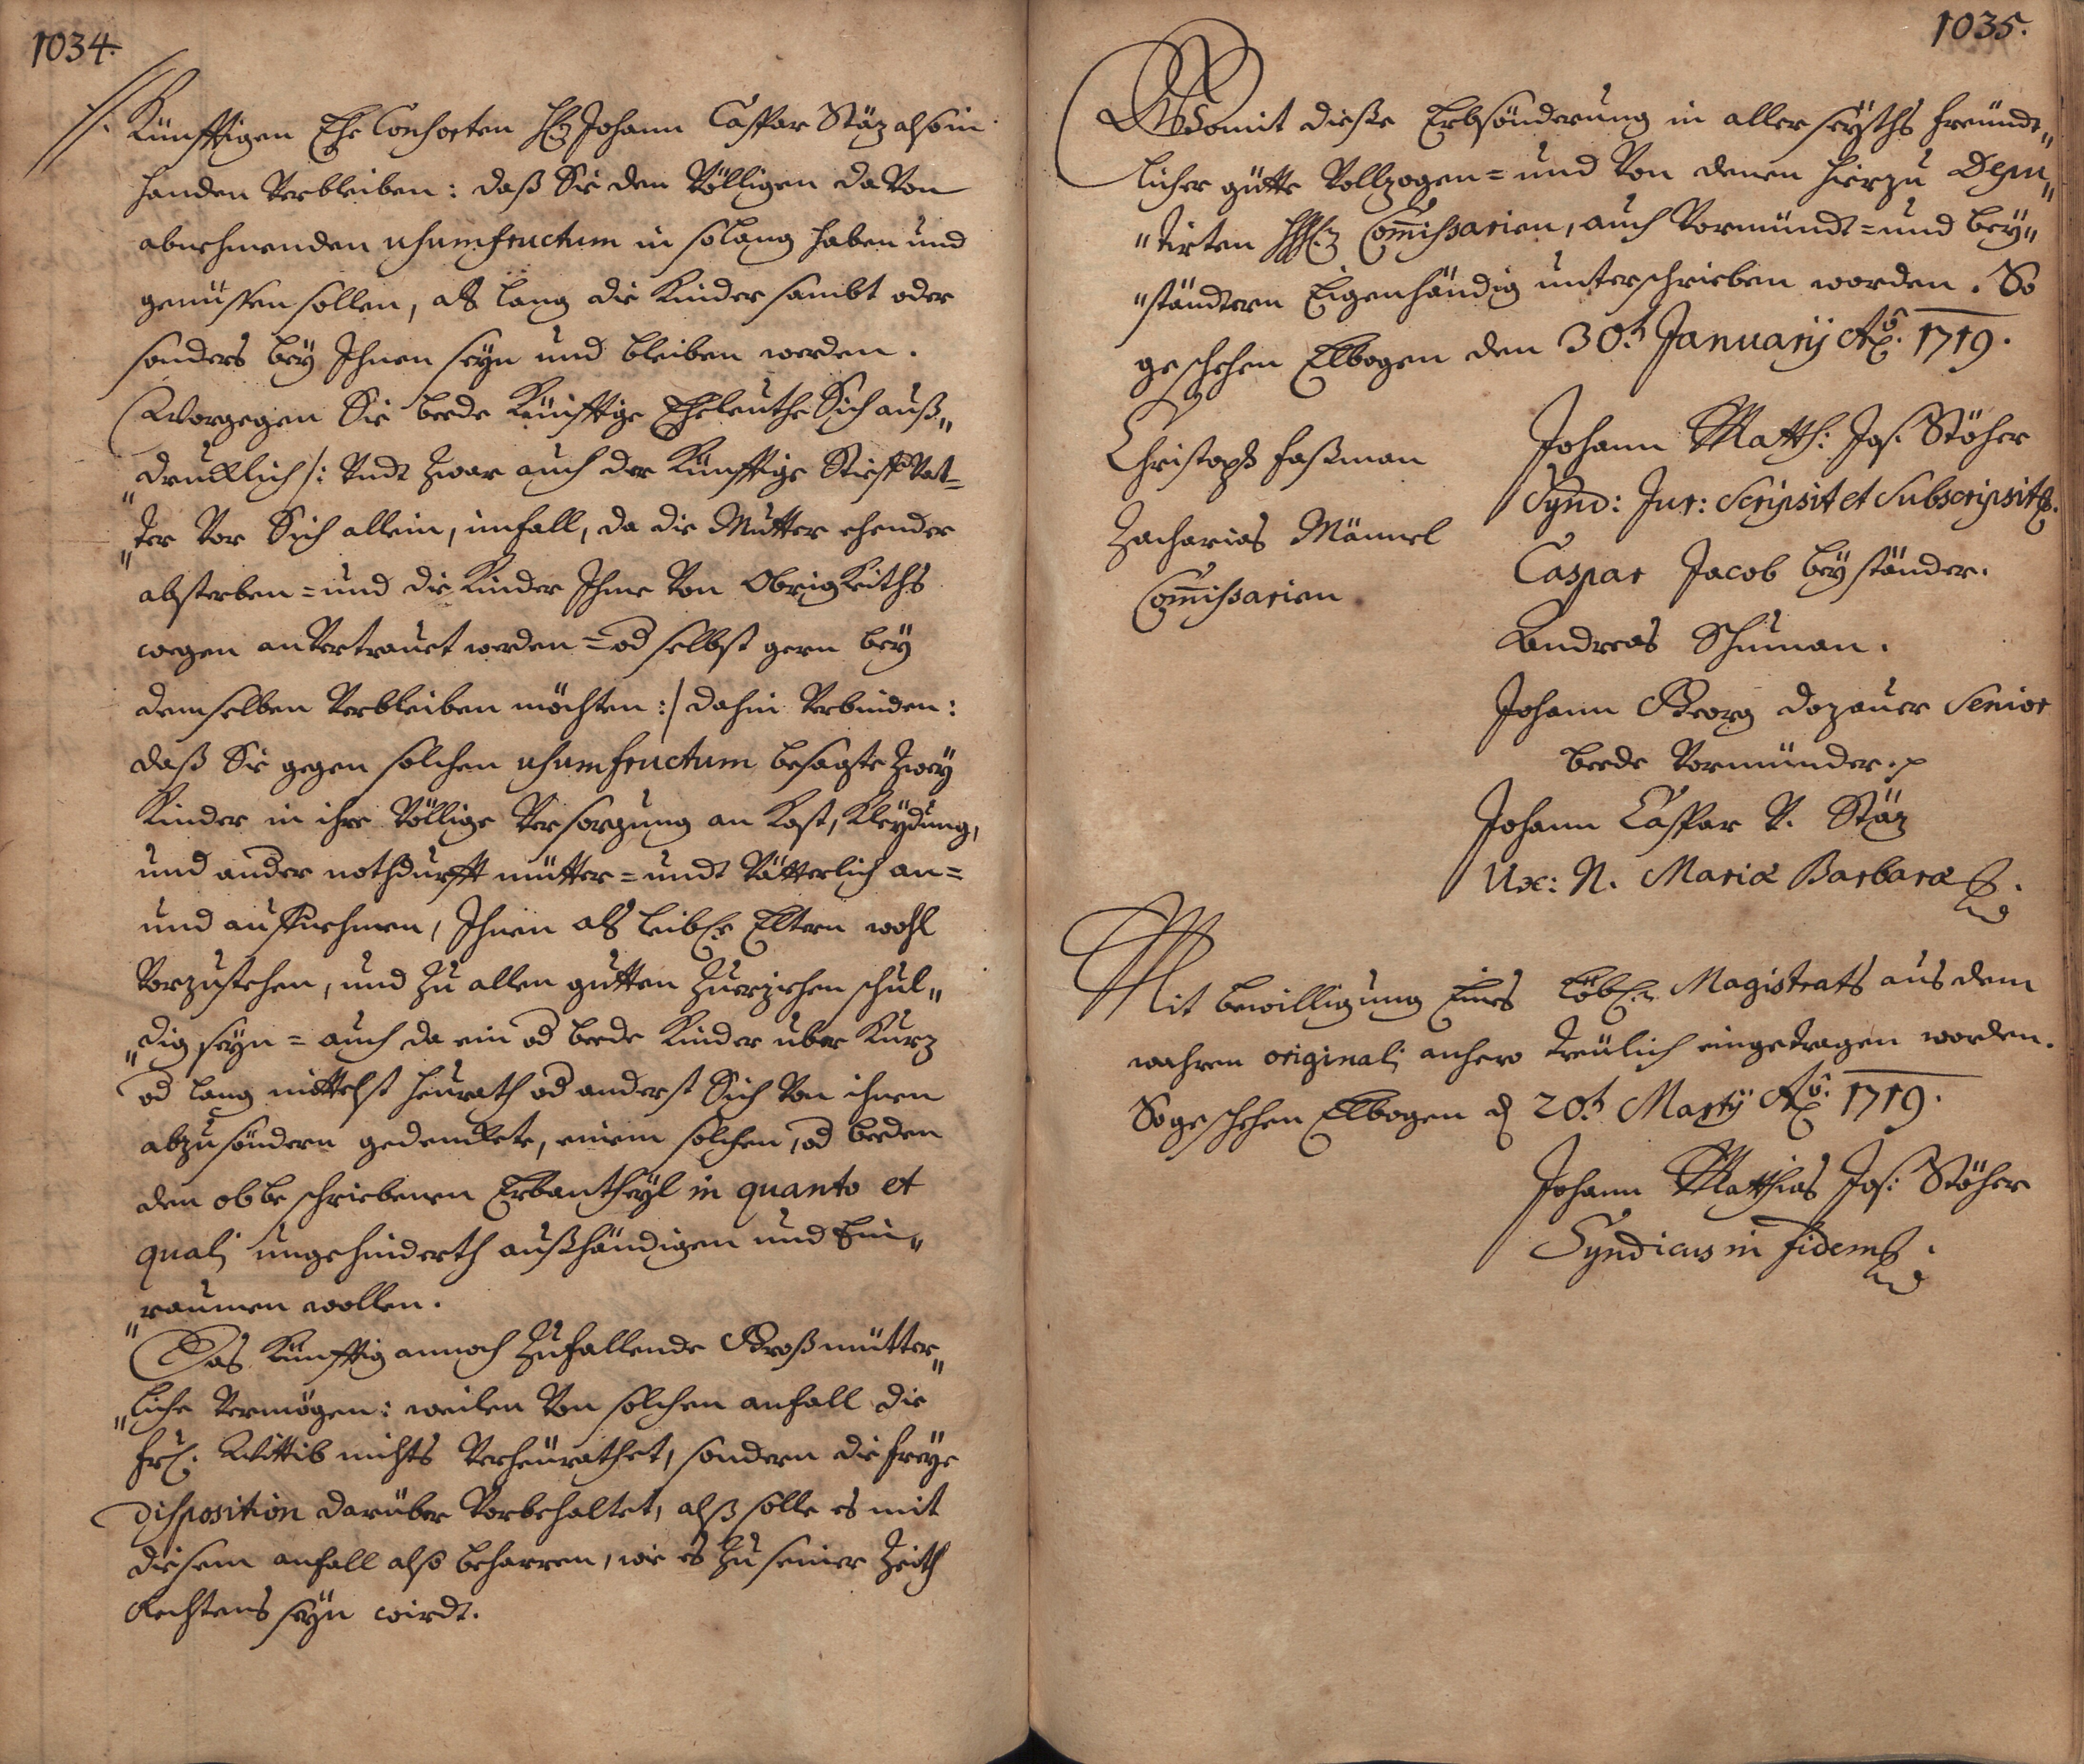 1034.
//. Künfftigen Ehe Consorten H: Johann Caspar Stäz also in
handen Verbleiben: daß Sie den Völligen da Von
abnehmenden usumfructum in solang haben und
genüssen sollen, alß lang die Kinder sambt oder
sonders beÿ Ihnen seÿn und bleiben werden.
Worgegen Sie beede Künfftige Eheleuthe Sich auß„
„drucklich /: Undt zwar auch der Künfftige Stieff Vat=
„ter Vor Sich allein, imfall, da die Mutter ehender
absterben = und die Kinder Ihme Von Obrigkeiths
wegen anVertrauet werden = od selbst gern beÿ
demselben Verbleiben möchten :/ dahin Verbinden:
daß Sie gegen solchen usumfructum besagte Zweÿ
Kinder in ihre Völlige Versorgung an Kost, Kleÿdung,
und ander nothdurfft mütter= undt Vätterlich an=
und auffnehmen, Ihnen alß leibl: Eltern wohl
Vorzustehen, und zu allen gutten zuerziehen schul„
„dig seÿn = auch da ein od beede Kinder uber Kurz
od lang mittelst heurath od anderst Sich Von ihnen
abzusöndern gedenckete, einem solchen, od beeden
den obbeschriebenen Erbantheÿl in quanto et
quali ungehinderth außhändigen und Ein„
„raumen wollen.
Das Künfftig annoch zufallende Großmütter„
„liche Vermögen: weilen Von solchen anfall die
fr: Wittib nichts Verheurathet, sondern die freÿe
disposition darüber Vorbehaltet, alß solle es mit
diesem anfall also beharren, wie es zu seiner Zeith
Rechtens seÿn wirdt.
1035.
Womit dieße Erbsönderung in aller seÿths freündt„
licher gütte Vollzogen = und Von denen hierzu Depu„
„tirten HHH: Commissarien, auch Vormündt = und beÿ„
„ständern Eigenhändig unterschrieben worden. So
geschehen Elbogen den 30.t Januarÿ Aõ. 1719.
Christoph Faßman
Zacharias Männel
Commissarien
Johann Matth: Jos: Stöher
Synd: Jur: Scripsit et Subscripsit.
Caspar Jacob beÿständer.
Andreas Schuman.
Johann Georg Dozauer Senior
beede Vormünder.
Johann Caspar V. Stäz
Ux: N. Maria Barbara.
Mit bewilligung Eines Löbl: Magistrats aus dem
wahren originali anhero treulich eingetragen worden.
So geschehen Elbogen d 20.t Martÿ Aõ. 1719.
Johann Matthias Jos: Stöher
Syndicus in fidem.